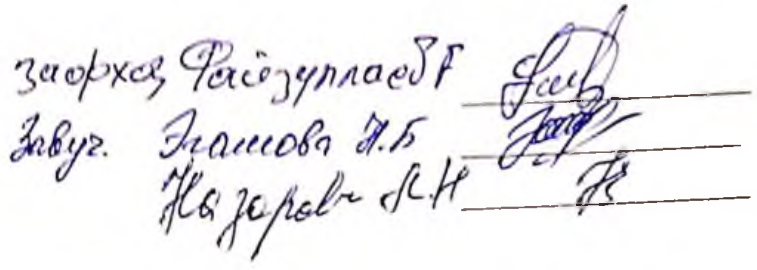 завхоз Файзуллаев Г
Завуч. Эгамова Н.Б
Назарова М.Н